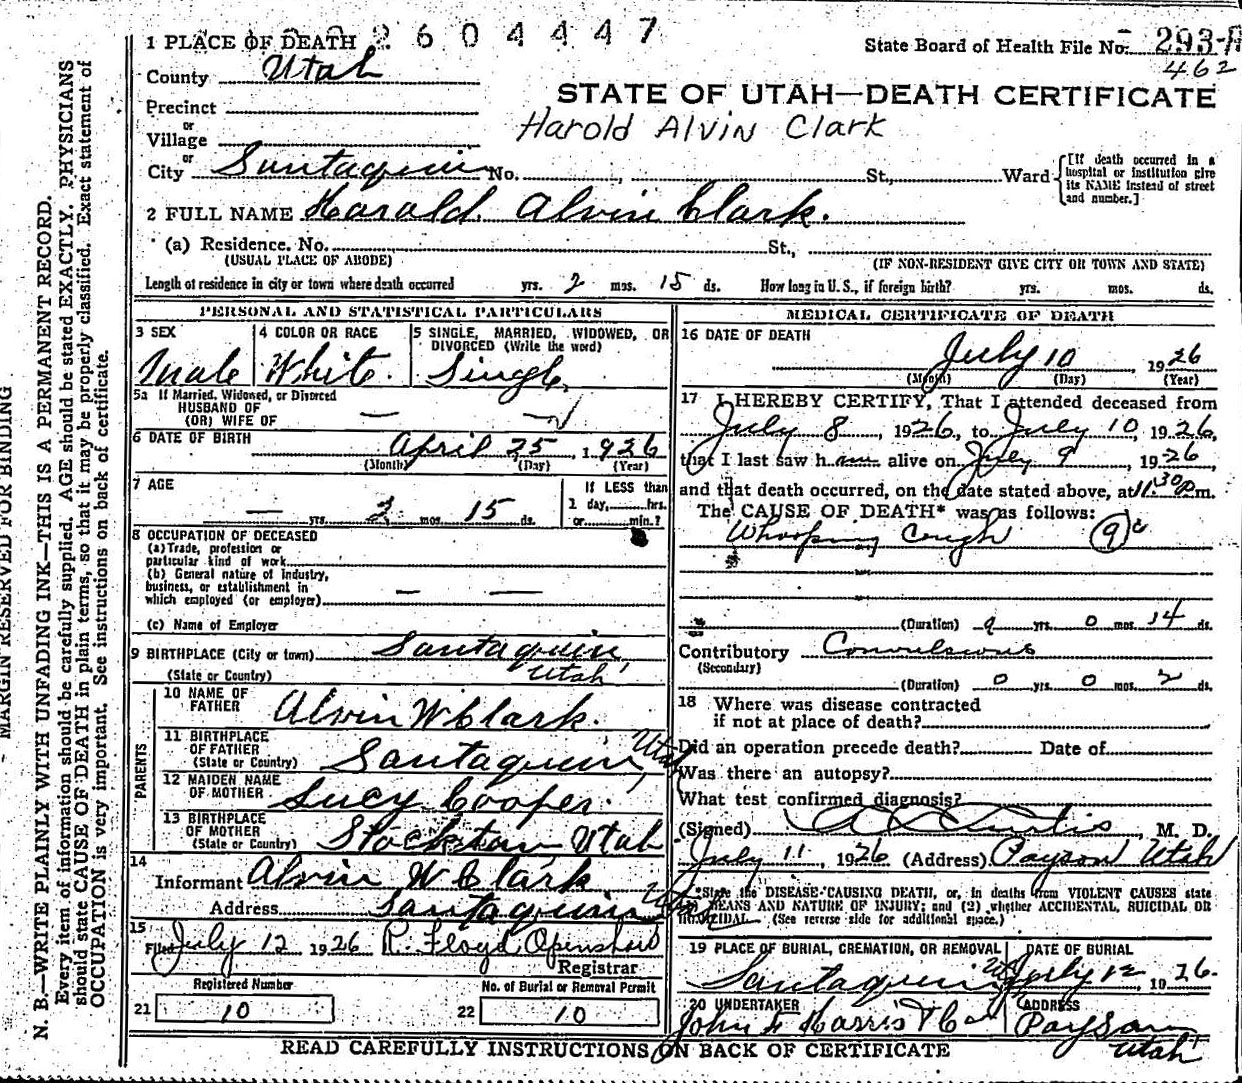 2604447
1 PLACE OF DEATH
State Board of Health File No. 293-A
462
County Utah
STATE OF UTAH—DEATH CERTIFICATE
Precinct
Harold Alvin Clark
or
Village
or
City Santaquin No. , St., Ward
[If death occurred in a hospital or institution give its NAME instead of street and number.]
2 FULL NAME Harold Alvin Clark.
(a) Residence. No. St.,
(USUAL PLACE OF ABODE) (IF NON-RESIDENT GIVE CITY OR TOWN AND STATE)
Length of residence in city or town where death occurred yrs. 2 mos. 15 ds. How long in U. S., if foreign birth? yrs. mos. ds.
PERSONAL AND STATISTICAL PARTICULARS
3 SEX 4 COLOR OR RACE 5 SINGLE, MARRIED, WIDOWED, OR DIVORCED (Write the word)
Male White. Single
5a If Married, Widowed, or Divorced
HUSBAND OF
(OR) WIFE OF — —
6 DATE OF BIRTH April 25, 1926
(Month) (Day) (Year)
7 AGE — yrs. 2 mos. 15 ds.
If LESS than
1 day, hrs.
or min.?
8 OCCUPATION OF DECEASED
(a) Trade, profession or
particular kind of work
(b) General nature of industry,
business, or establishment in
which employed (or employer) — —
(c) Name of Employer
9 BIRTHPLACE (City or town) Santaquin,
(State or Country) Utah
PARENTS
10 NAME OF FATHER Alvin W Clark.
11 BIRTHPLACE OF FATHER (State or Country) Santaquin, Utah
12 MAIDEN NAME OF MOTHER Lucy Cooper.
13 BIRTHPLACE OF MOTHER (State or Country) Stockton Utah
14
Informant Alvin W Clark
Address Santaquin Utah
15
Filed July 12 1926 R. Floyd Openshaw
Registrar
Registered Number No. of Burial or Removal Permit
21 10 22 10
MEDICAL CERTIFICATE OF DEATH
16 DATE OF DEATH
July 10, 1926
(Month) (Day) (Year)
17 I HEREBY CERTIFY, That I attended deceased from
July 8, 1926, to July 10, 1926,
that I last saw h alive on July 9, 1926,
and that death occurred, on the date stated above, at 11.30 p.m.
The CAUSE OF DEATH* was as follows:
Whooping Cough 9
(Duration) yrs. 0 mos. 14 ds.
Contributory Convulsions
(Secondary)
(Duration) 0 yrs. 0 mos. 2 ds.
18 Where was disease contracted
if not at place of death?
Did an operation precede death? Date of
Was there an autopsy?
What test confirmed diagnosis?
(Signed) Curtis, M. D.
July 11, 1926 (Address) Payson Utah
*State the DISEASE CAUSING DEATH, or, in deaths from VIOLENT CAUSES state
(1) MEANS AND NATURE OF INJURY; and (2) whether ACCIDENTAL, SUICIDAL OR
HOMICIDAL. (See reverse side for additional space.)
19 PLACE OF BURIAL, CREMATION, OR REMOVAL DATE OF BURIAL
Santaquin Ut July 12, 1926.
20 UNDERTAKER ADDRESS
John F Harris & Co Payson
Utah
READ CAREFULLY INSTRUCTIONS ON BACK OF CERTIFICATE
MARGIN RESERVED FOR BINDING
N. B.—WRITE PLAINLY WITH UNFADING INK—THIS IS A PERMANENT RECORD.
Every item of information should be carefully supplied. AGE should be stated EXACTLY. PHYSICIANS
should state CAUSE OF DEATH in plain terms, so that it may be properly classified. Exact statement of
OCCUPATION is very important. See instructions on back of certificate.